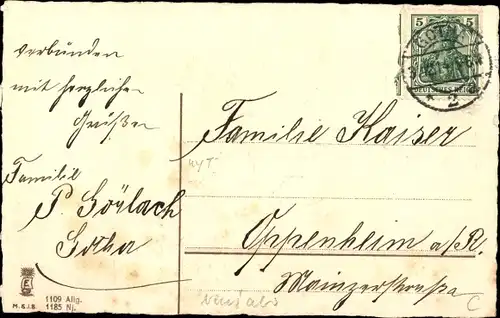 verbunden
mit herzlichen
Grüßen
Familie
P. Görlach
Gotha
M.S.i.B.
1109 Allg.
1185 Nj.
5 5
GOTHA
DEUTSCHES REICH
* 2
Familie Kaiser
Oppenheim a/R.
Mainzerstraße